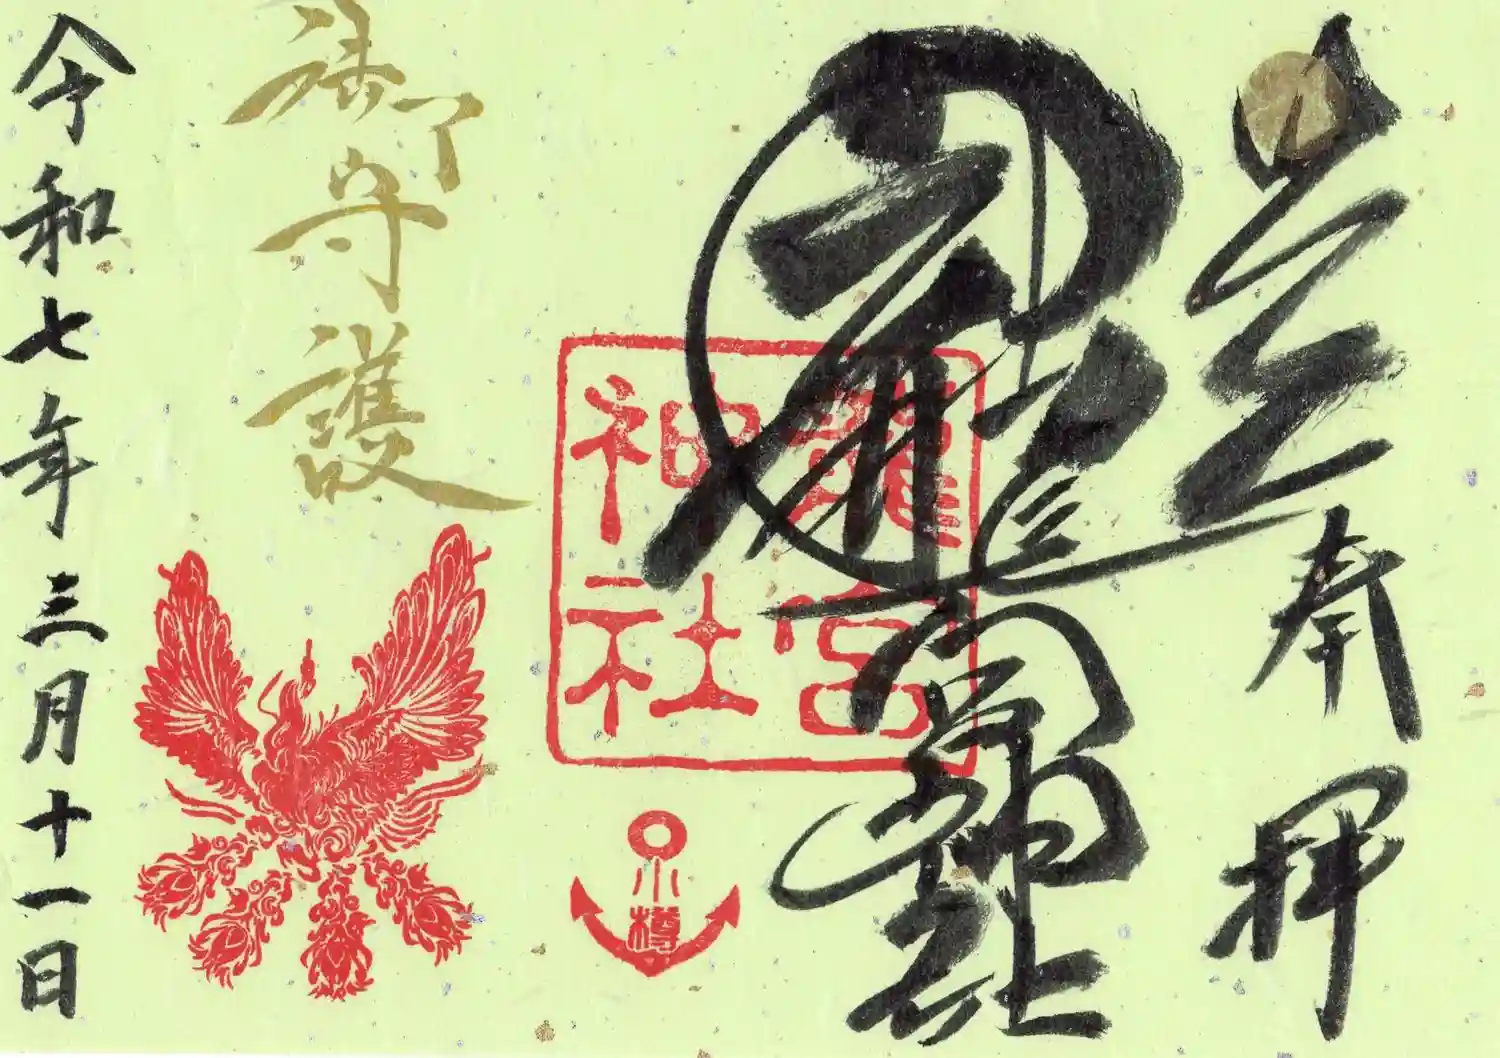 奉拝
龍宮神社
龍宮
神社
小樽
御守護
令和七年三月十一日